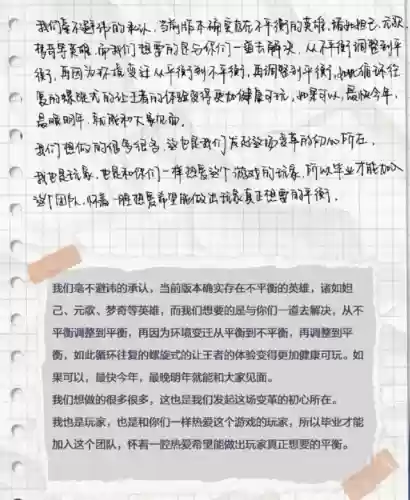 我们毫不避讳的承认，当前版本确实存在不平衡的英雄，诸如妲己、元歌、
梦奇等英雄，而我们想要的是与你们一道去解决，从不平衡调整到平
衡，再因为环境变迁从平衡到不平衡，再调整到平衡，如此循环往
复的螺旋式的让王者的体验变得更加健康可玩。如果可以，最快今年，
最晚明年，就能和大家见面。
我们想做的很多很多，这也是我们发起这场变革的初心所在。
我也是玩家，也是和你们一样热爱这个游戏的玩家，所以毕业才能加入
这个团队，怀着一腔热爱希望能做出玩家真正想要的平衡。
我们毫不避讳的承认，当前版本确实存在不平衡的英雄，诸如妲
己、元歌、梦奇等英雄，而我们想要的是与你们一道去解决，从不
平衡调整到平衡，再因为环境变迁从平衡到不平衡，再调整到平
衡，如此循环往复的螺旋式的让王者的体验变得更加健康可玩。如
果可以，最快今年，最晚明年就能和大家见面。
我们想做的很多很多，这也是我们发起这场变革的初心所在。
我也是玩家，也是和你们一样热爱这个游戏的玩家，所以毕业才能
加入这个团队，怀着一腔热爱希望能做出玩家真正想要的平衡。